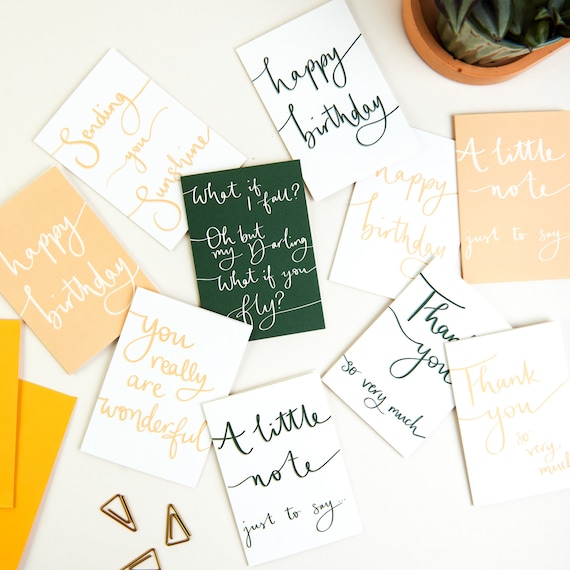 happy
birthday
Sending
you
Sunshine
A little
note
just to say
What if
I fall?
Oh but
my Darling
What if you
fly?
happy
birthday
happy
birthday
Thank
you
so very much
you
really
are
wonderful
Thank
you
so
very
much
A little
note
just to say...